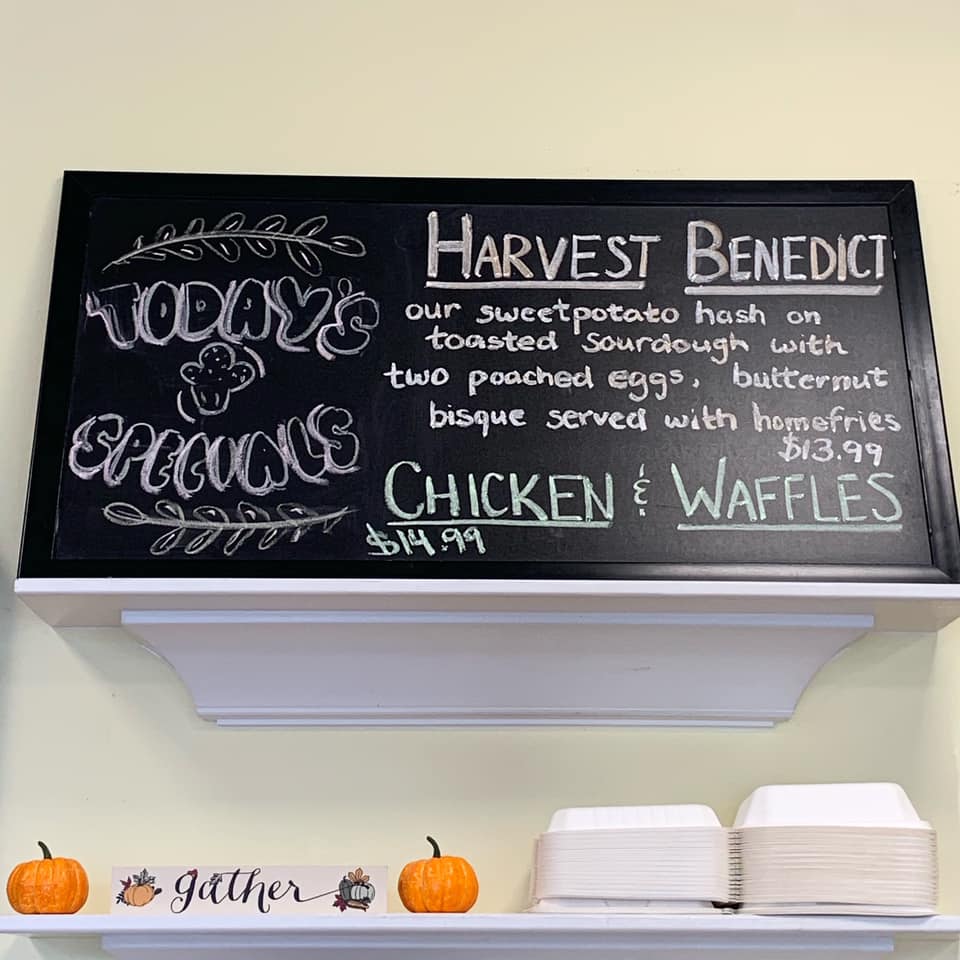 TODAY'S
SPECIALS
HARVEST BENEDICT
our sweetpotato hash on
toasted sourdough with
two poached eggs, butternut
bisque served with homefries
$13.99
CHICKEN & WAFFLES
$14.99
gather